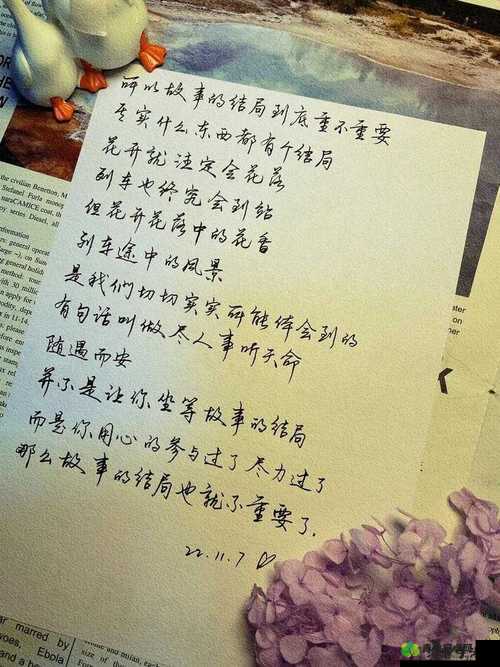 所以故事的结局到底重不重要
其实什么东西都有个结局
花开就注定会花落
列车也终究会到站
但花开花落中的花香
列车途中的风景
是我们切切实实所能体会到的
有句话叫做尽人事听天命
随遇而安
并不是让你坐等故事的结局
而是你用心的参与过了尽力过了
那么故事的结局也就不重要了.
22.11.7 ♡
the civilian Benetton, M
Stefanel Furla
maraCAMICE.coat, th
series Diesel, all
information